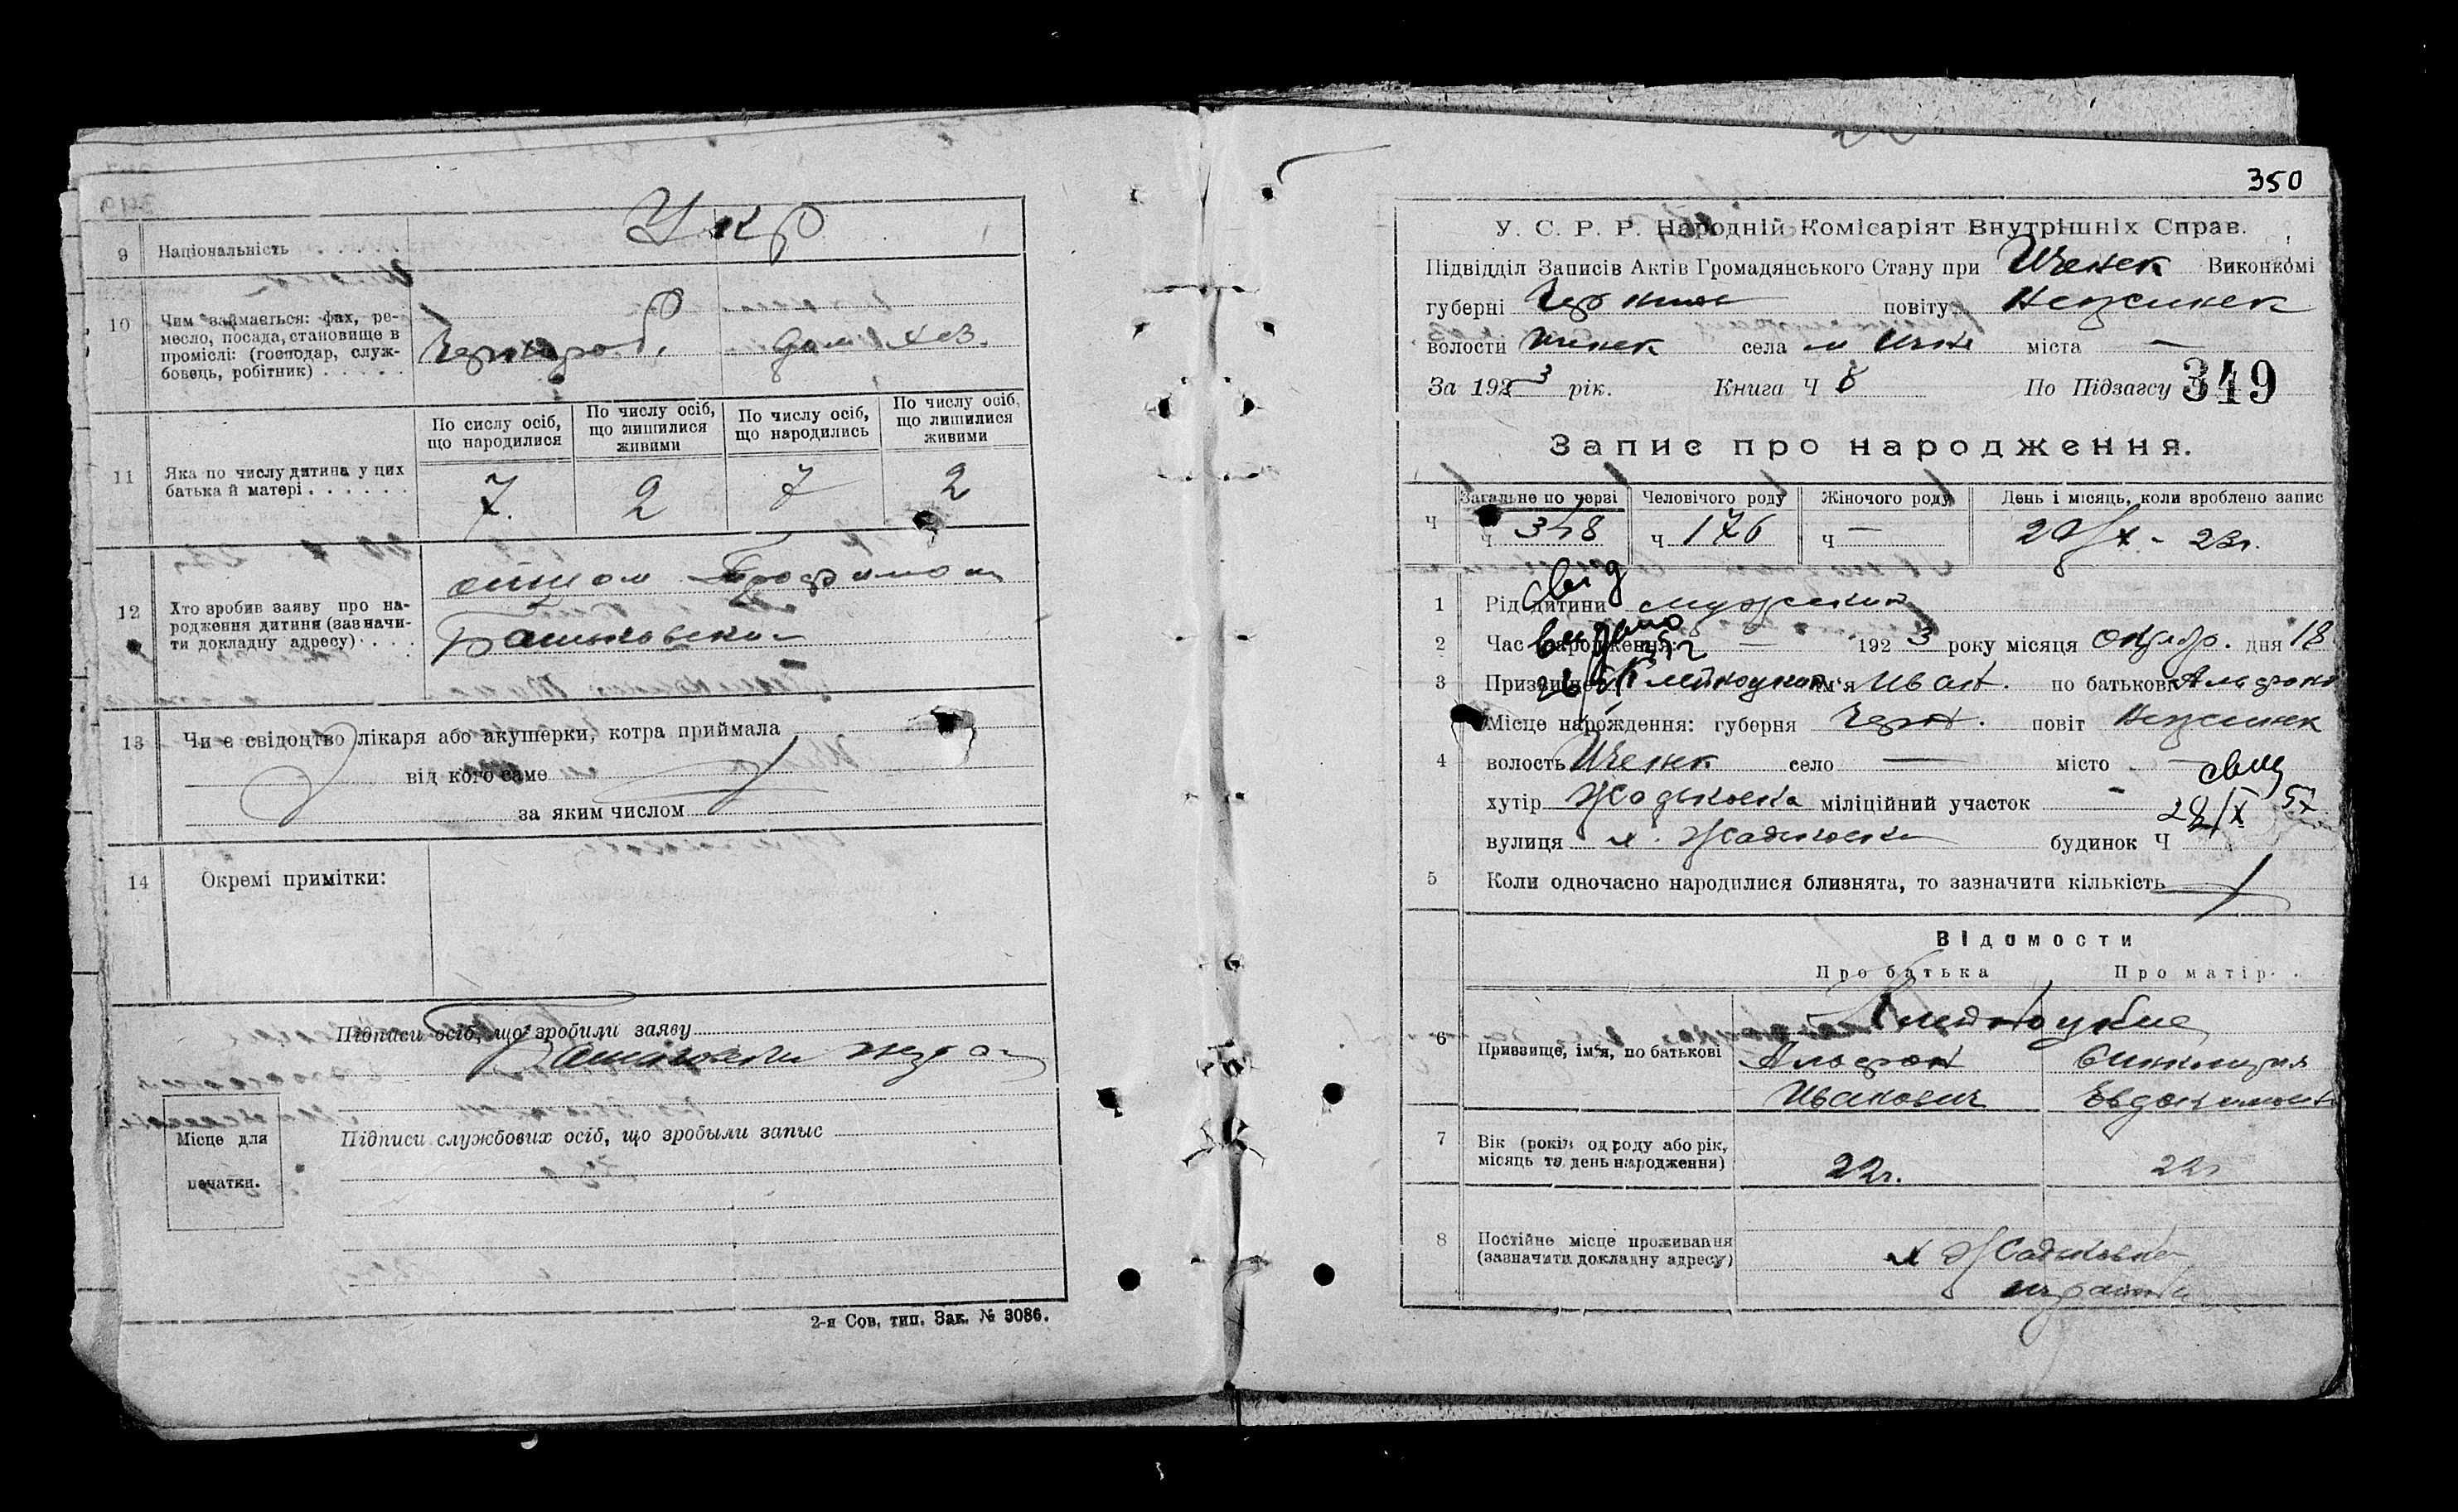 9 Національність . . . . Укр
10 Чим займається: фах, ре-
месло, посада, становище в
проміслі: (господар, служ-
бовець, робітник) . . . . .
Чернораб. дом. хоз.
По сислу осіб, що народилися
По числу осіб, що лишилися живими
По числу осіб, що народились
По числу осіб, що лишилися живими
11 Яка по числу дитина у цих
батька й матері . . . . . .
7. 2 7 2
12 Хто зробив заяву про на-
родження дитини (зазначи-
ти докладну адресу) . . . .
отцом Трофимом
13 Чи є свідоцтво лікаря або акушерки, котра приймала
від кого саме
за яким числом
14 Окремі примітки:
Підписи осіб, що зробили заяву
Місце для
печатки.
Підписи службових осіб, що зробыли запыс
2-я Сов. тип. Зак. № 3086.
350
У. С. Р. Р. Народній Комісаріят Внутрішніх Справ.
Підвідділ Записів Актів Громадянського Стану при Иченск Виконкомі
губерні повіту Нежинск
волости Иченск села м Ичня міста —
За 1923 рік. Книга Ч 8 По Підзагсу 349
Запис про народження.
Загальне по черзі Человічого роду Жіночого роду День і місяць, коли зроблено запис
Ч Ч 348 Ч 176 Ч — 29/X - 23г.
свид
1 Рід дитини мужской
видано
2 Час народження: — 1923 року місяця октябр. дня 18
3 Призвище Клейноцкий ім'я Иван. по батькові Альфонс
Місце народження: губерня Черн. повіт Нежинск
4 волость Иченск село — місто —
свид
хутір Жадьковка міліційний участок -
вулиця х. Жадьковка будинок Ч
5 Коли одночасно народилися близнята, то зазначити кількість
Відомости
Про батька Про матір . .
6 Призвище, ім'я, по батькові
Клейноцкие
Альфонс
Иванович Евдокимовн
7 Вік (років од роду або рік,
місяць та день народження)
22г. 22г
8 Постійне місце проживання
(зазначити докладну адресу)
х Жадьковка